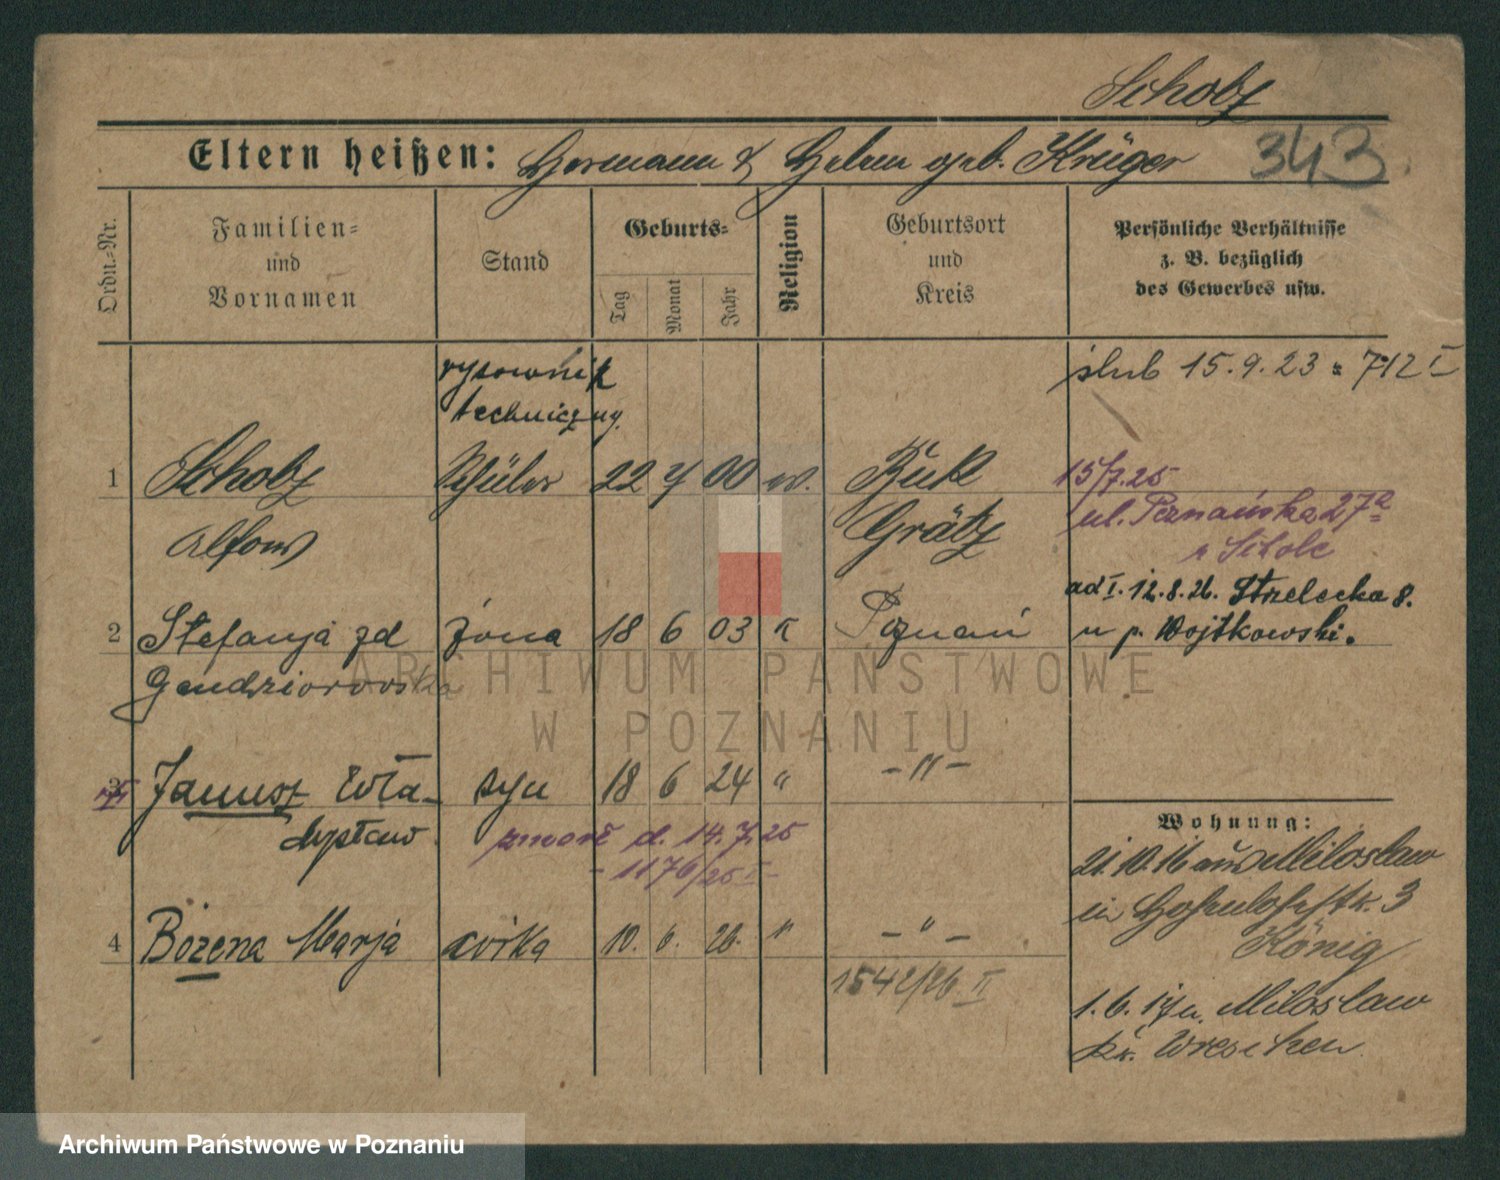 Scholz
Eltern heißen: Hermann & Helene geb. Krüger
343
Ordn.-Nr.
Familien-
und
Vornamen
Stand
Geburts-
Tag
Monat
Jahr
Religion
Geburtsort
und
Kreis
Persönliche Verhältnisse
z. B. bezüglich
des Gewerbes usw.
rysownik
techniczny.
ślub 15.9.23 712 I
1
Scholz
Schüler
22 00
Buk
15/7.25
Alfons
Grätz
ul. Poznańska 27a
ad I. 12.8.26. Strzelecka 8.
2
Stefanja zd
żona
18 6 03
Poznań
u p. Wojtkowski.
Gendziorowska
Janusz Wła-
syn
18 6 24 "
-"-
dysław
zmarł d. 14.7.25
- 1176/25 I -
Wohnung:
21.10.16 aus Miloslaw
in Hohenlohestr. 3
König
4
Bożena Marja
córka
10. 6. 26. "
- " -
1542/26 II
1.6.17 n. Miloslaw
Kr. Wreschen
ARCHIWUM PAŃSTWOWE
W POZNANIU
Archiwum Państwowe w Poznaniu